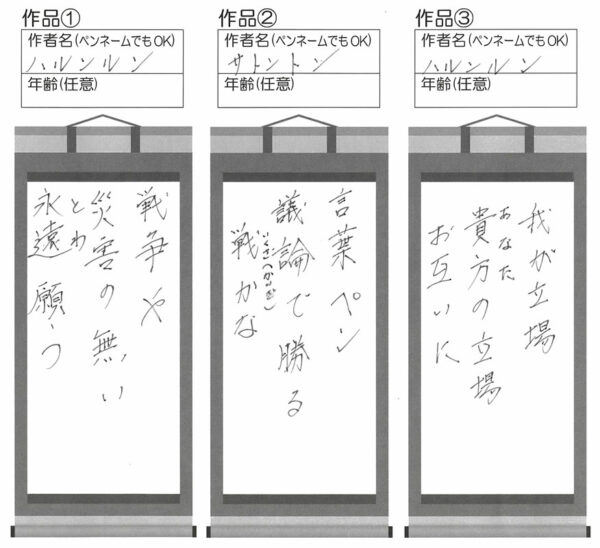 作品①
作者名(ペンネームでもOK)
ハルンルン
年齢(任意)
戦争や
災害の無い
とわ
永遠願う
作品②
作者名(ペンネームでもOK)
サトントン
年齢(任意)
言葉ペン
議論で勝る
いくさ(かな)
戦かな
作品③
作者名(ペンネームでもOK)
ハルンルン
年齢(任意)
我が立場
あなた
貴方の立場
お互いに